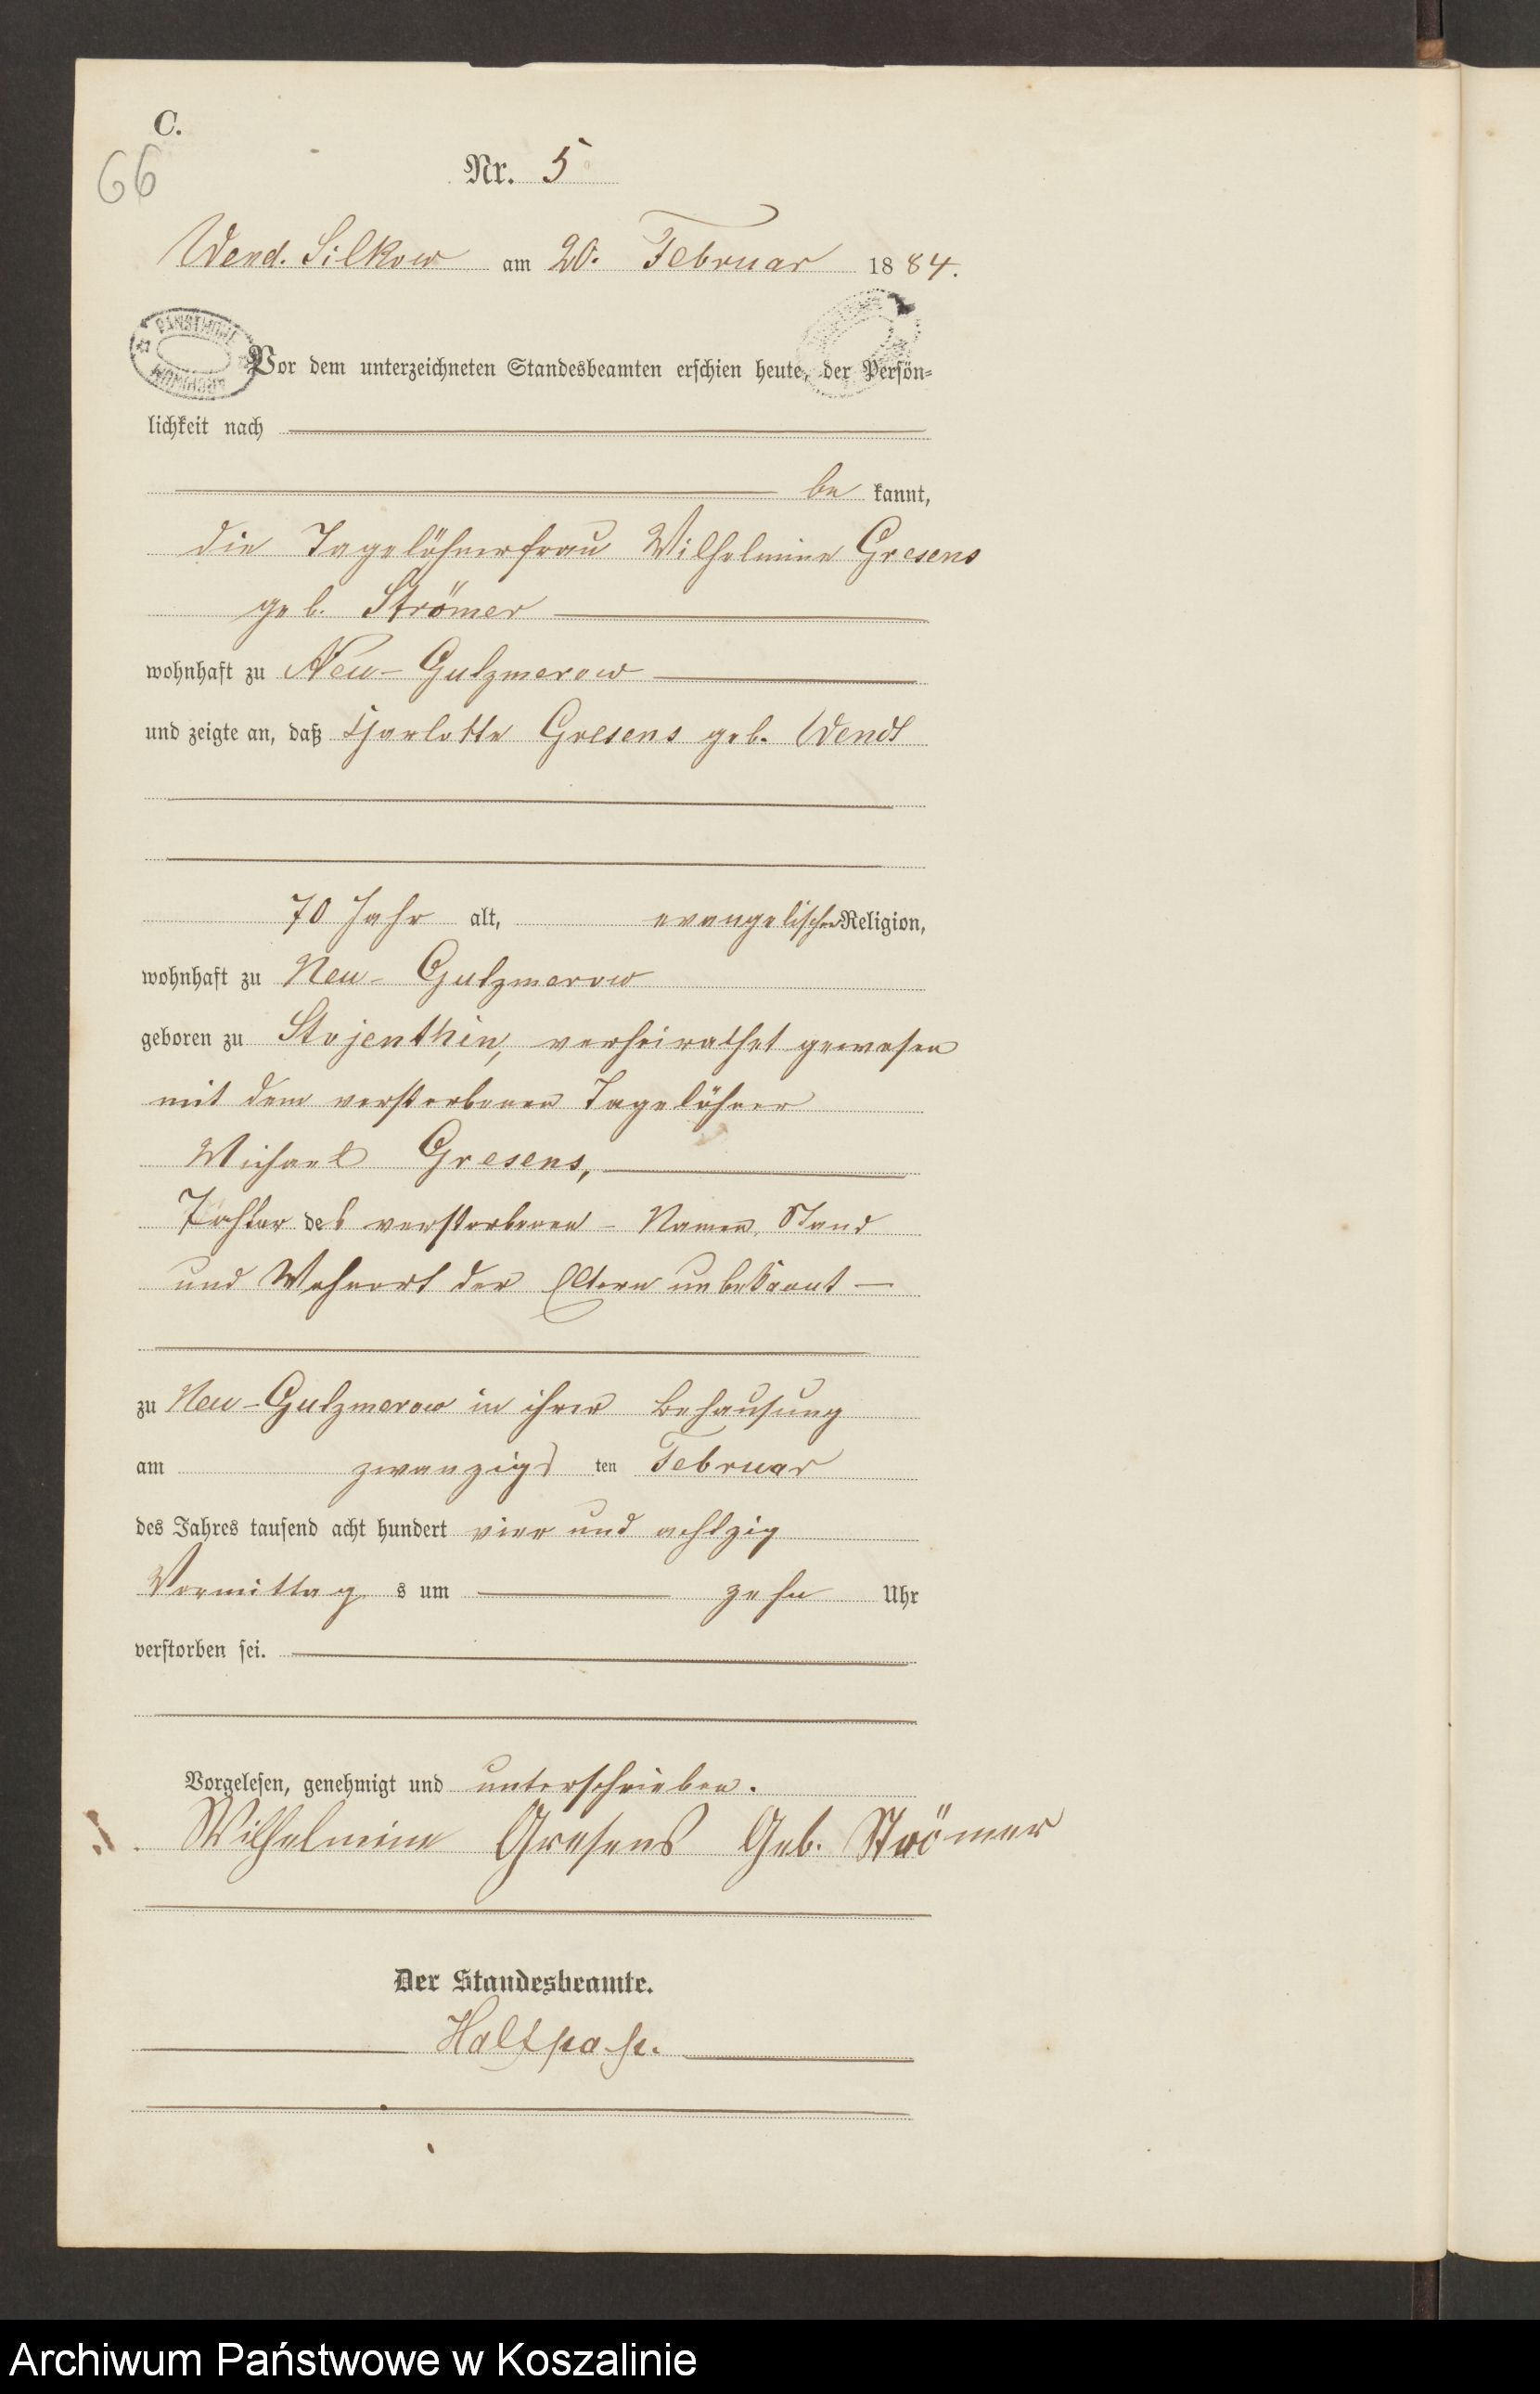 C.
66
Nr. 5
Wend. Silkow am 20. Februar 1884.
Vor dem unterzeichneten Standesbeamten erschien heute, der Persön=
lichkeit nach
be kannt,
die Tagelöhnerfrau Wilhelmine Gresens
geb. Strömer
wohnhaft zu Neu-Gulzmerow
und zeigte an, daß Charlotte Gresens geb. Wendt
70 Jahr alt, evangelischer Religion,
wohnhaft zu Neu-Gulzmerow
geboren zu Stojenthin, verheirathet gewesen
mit dem verstorbenen Tagelöhner
Michael Gresens,
Tochter des verstorbenen - Namen, Stand
und Wohnort der Eltern unbekannt -
zu Neu-Gulzmerow in ihrer Behausung
am zwanzigs ten Februar
des Jahres tausend acht hundert vier und achtzig
Vormittag s um zehn Uhr
verstorben sei.
Vorgelesen, genehmigt und unterschrieben.
Wilhelmine Gresens Geb. Strömer
Der Standesbeamte.
Archiwum Państwowe w Koszalinie